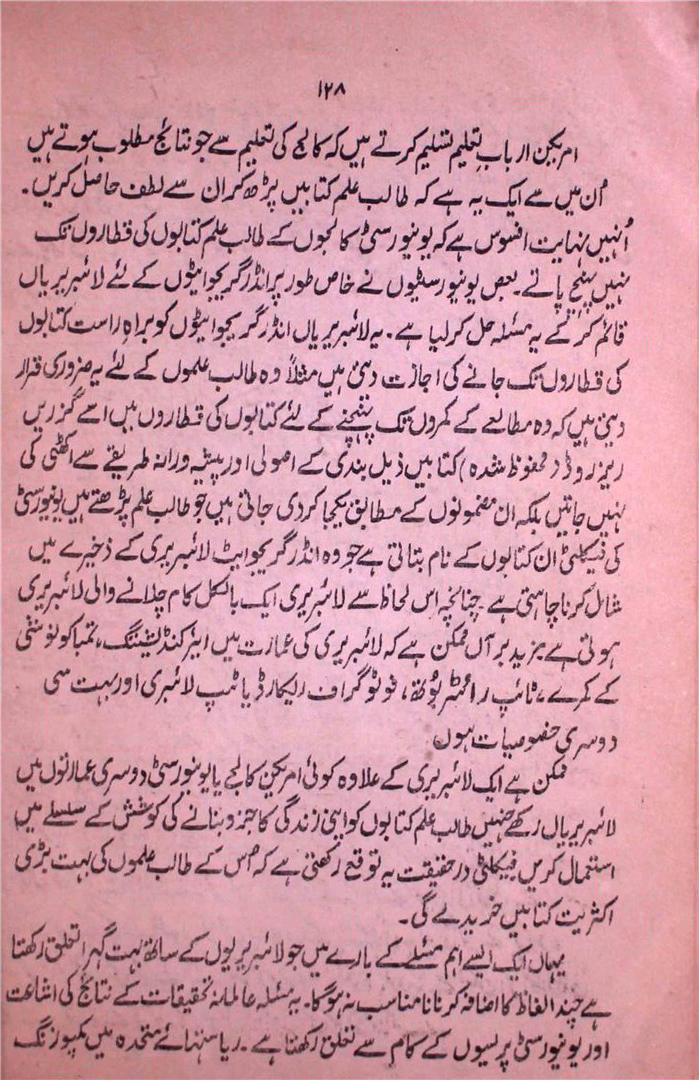 ۱۲۸
امریکن اربابِ تعلیم تسلیم کرتے ہیں کہ کالج کی تعلیم سے جو نتائج مطلوب ہوتے ہیں
اُن میں سے ایک یہ ہے کہ طالب علم کتابیں پڑھ کر ان سے لطف حاصل کریں۔
اُنہیں نہایت افسوس ہے کہ یونیورسٹی کالجوں کے طالب علم کتابوں کی قطاروں تک
نہیں پہنچ پاتے۔ بعض یونیورسٹیوں نے خاص طور پر انڈر گریجوایٹوں کے لئے لائبریریاں
قائم کر کے یہ مسئلہ حل کر لیا ہے۔ یہ لائبریریاں انڈر گریجوایٹوں کو براہِ راست کتابوں
کی قطاروں تک جانے کی اجازت دیتی ہیں مثلاً وہ طالب علموں کے لئے یہ ضروری قرار
دیتی ہیں کہ وہ مطالعے کے کمروں تک پہنچنے کے لئے کتابوں کی قطاروں میں سے گزریں
ریزروڈ (محفوظ شدہ) کتابیں ذیل بندی کے اصولی اور پیشہ ورانہ طریقے سے اکٹھی کی
نہیں جاتیں بلکہ ان مضمونوں کے مطابق یکجا کر دی جاتی ہیں جو طالب علم پڑھتے ہیں یونیورسٹی
کی فیکلٹی ان کتابوں کے نام بتاتی ہے جو وہ انڈر گریجوایٹ لائبریری کے ذخیرے میں
شامل کرنا چاہتی ہے چنانچہ اس لحاظ سے لائبریری ایک بالکل کام چلانے والی لائبریری
ہوتی ہے مزید بر آں ممکن ہے کہ لائبریری کی عمارت میں ایئر کنڈیشننگ، تمباکو نوشی
کے کمرے، ٹائپ رائٹر بوتھ، فوٹو گراف ریکارڈ یا ٹیپ لائبری اور بہت سی
دوسری خصوصیات ہوں
ممکن ہے ایک لائبریری کے علاوہ کوئی امریکن کالج یا یونیورسٹی دوسری عمارتوں میں
لائبریریاں رکھے جنہیں طالب علم کتابوں کو اپنی زندگی کا جزو بنانے کی کوشش کے سلسلے میں
استعمال کریں فیکلٹی درحقیقت یہ توقع رکھتی ہے کہ اُس کے طالب علموں کی بہت بڑی
اکثریت کتابیں خریدے گی۔
یہاں ایک ایسے اہم مسئلے کے بارے میں جو لائبریریوں کے ساتھ بہت گہرا تعلق رکھتا
ہے چند الفاظ کا اضافہ کرنا نامناسب نہ ہوگا۔ یہ مسئلہ عالمانہ تحقیقات کے نتائج کی اشاعت
اور یونیورسٹی پریسوں کے کام سے تعلق رکھتا ہے۔ ریاستہائے متحدہ میں کمپوزنگ